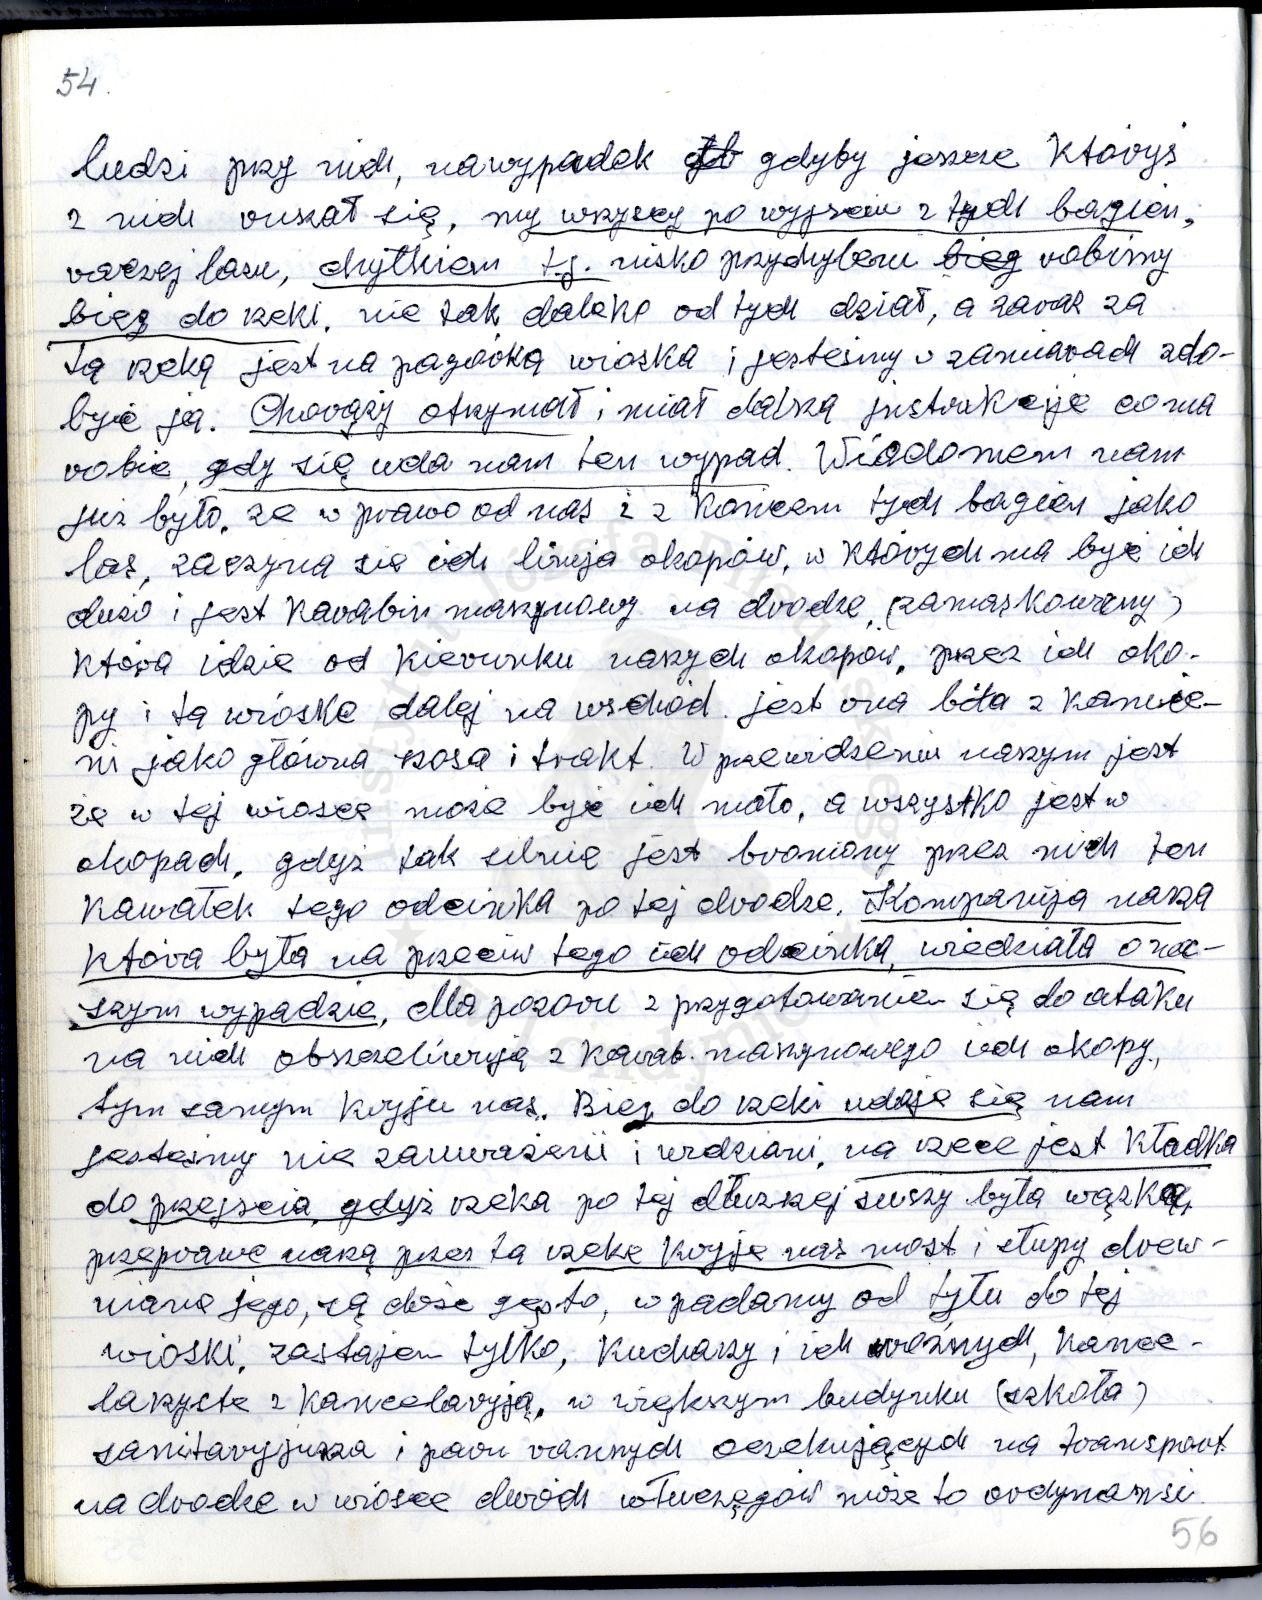 54.
ludzi przy nich, nawypadek gdyby jeszcze któryś
z nich ruszał się, my wszyscy po wyjściu z tych bagien,
raczej lasu, chyłkiem t.j. nisko przychyleni bieg robimy
bieg do rzeki, nie tak daleko od tych dział, a zaraz za
tą rzeką jest na pagórku wioska i jesteśmy w zamiarach zdo-
być ją. Chorąży otrzymał i miał dalszą instrukcyję co ma
robić, gdy się uda nam ten wypad. Wiadomem nam
już było, że w prawo od nas i z końcem tych bagien jako
las, zaczyna się ich linija okopów, w których ma być ich
dużo i jest karabin maszynowy na drodze, (zamaskowany)
która idzie od kierunku naszych okopów, przez ich oko-
py i tą wioskę dalej na wschód. jest ona bita z kamie-
ni jako główna szosa i trakt. W przewidzeniu naszym jest
że w tej wiosce może być ich mało, a wszystko jest w
okopach, gdyż tak silnie jest broniony przez nich ten
kawałek tego odcinka po tej drodze. Kompanija nasza
która była na przeciw tego ich odcinka, wiedziała o na-
szym wypadzie, dla pozoru z przygotowaniem się do ataku
na nich obszczeliwują z karab. maszynowego ich okopy,
tym samym kryju nas. Bieg do rzeki udaje się nam
jesteśmy nie zauważeni i widziani, na rzece jest kładka
do przejscia, gdyż rzeka po tej dłuższej suszy była wązką,
przeprawę naszą przez tą rzekę kryje nas most i słupy drew-
niane jego, są dość gęsto, wpadamy od tyłu do tej
wioski, zastajem tylko, kucharzy i ich woźnych, kance-
larzystę z kancelaryją, w większym budynku (szkoła)
sanitaryjusza i paru rannych oczekujących na transport
na drodze w wiosce dwóch włuczęgów może to ordynansi
56